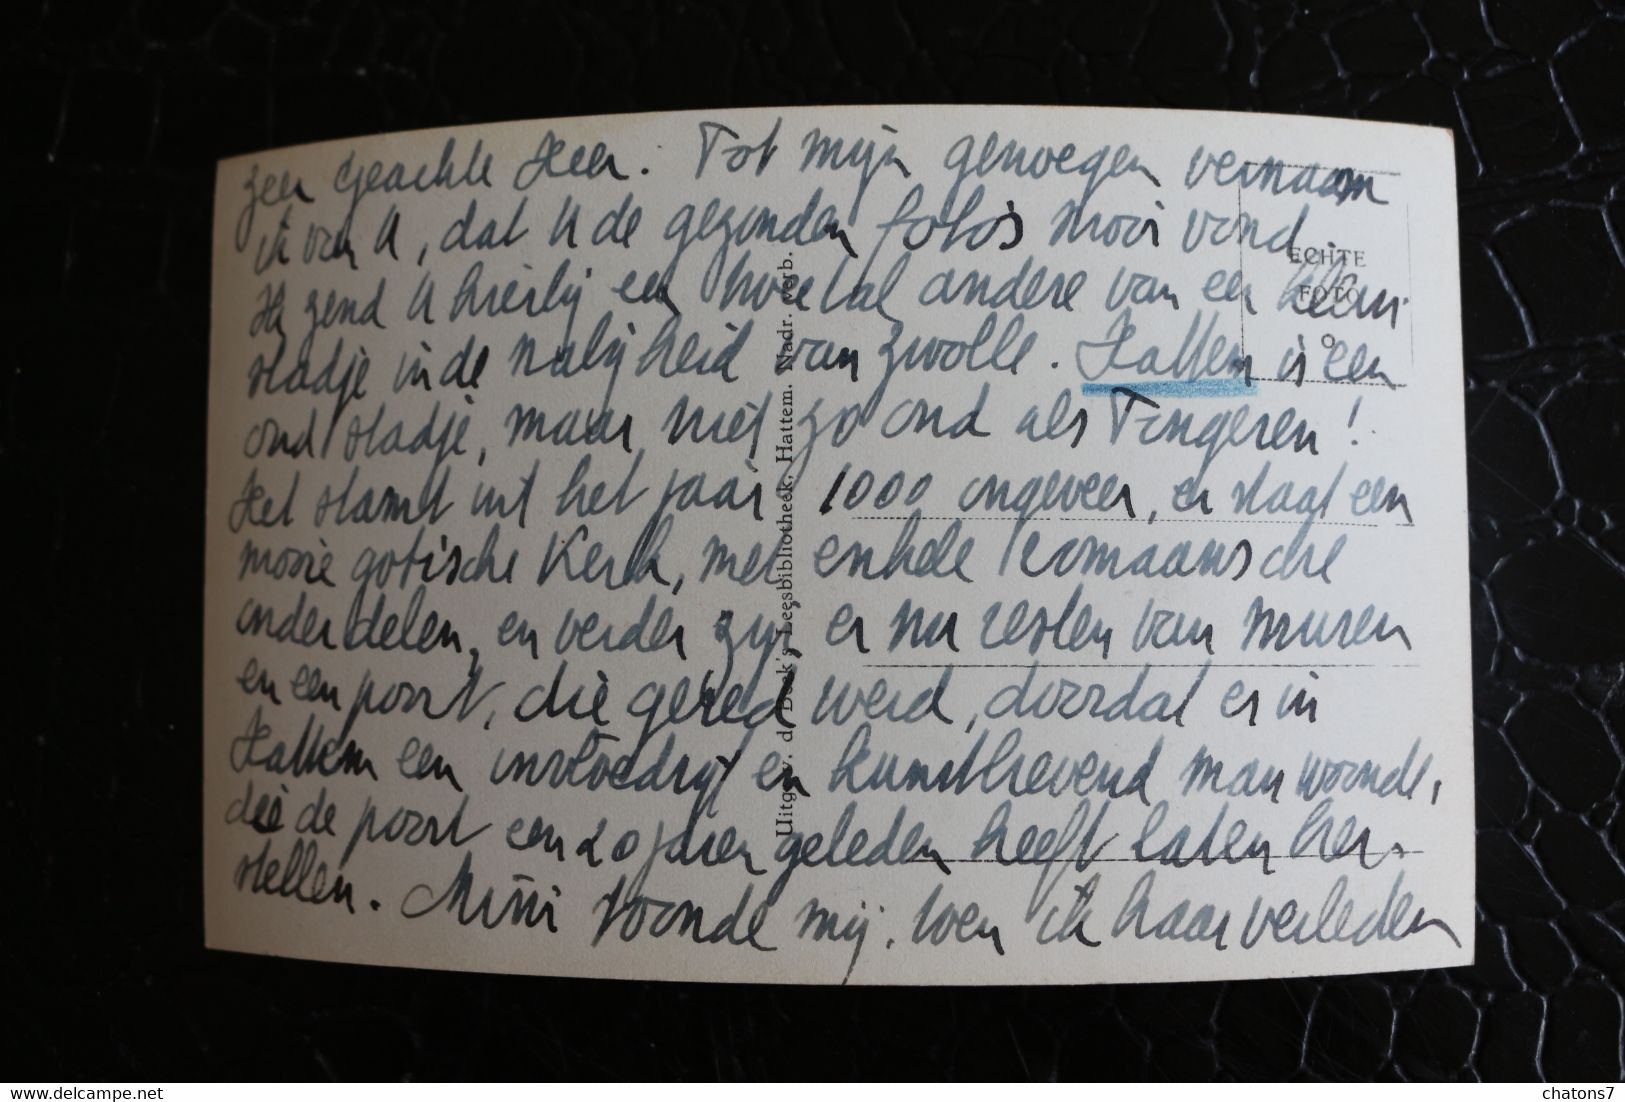 zeer Geachte Heer. Tot mijn genoegen vernaam
ik van U, dat U de gezonden foto's mooi vond.
Ik zend U hierbij een tweetal andere van een klein
stadje in de nabijheid van Zwolle. Hattem is een
oud stadje, maar niet zo oud als Tongeren!
Het stamt uit het jaar 1000 ongeveer, er staat een
mooie gotische Kerk, met enkele Romaansche
onderdelen, en verder zijn er nu resten van muren
en een poort, die gered werd, doordat er in
Hattem een invloedrijk en kunstlievend man woonde,
die de poort een 20 jaren geleden heeft laten her-
stellen. Mini toonde mij, toen ik haar verleden
ECHTE
FOTO
Uitgev. d. Boek's Leesbibliotheek, Hattem. Nadr. verb.
chatons7